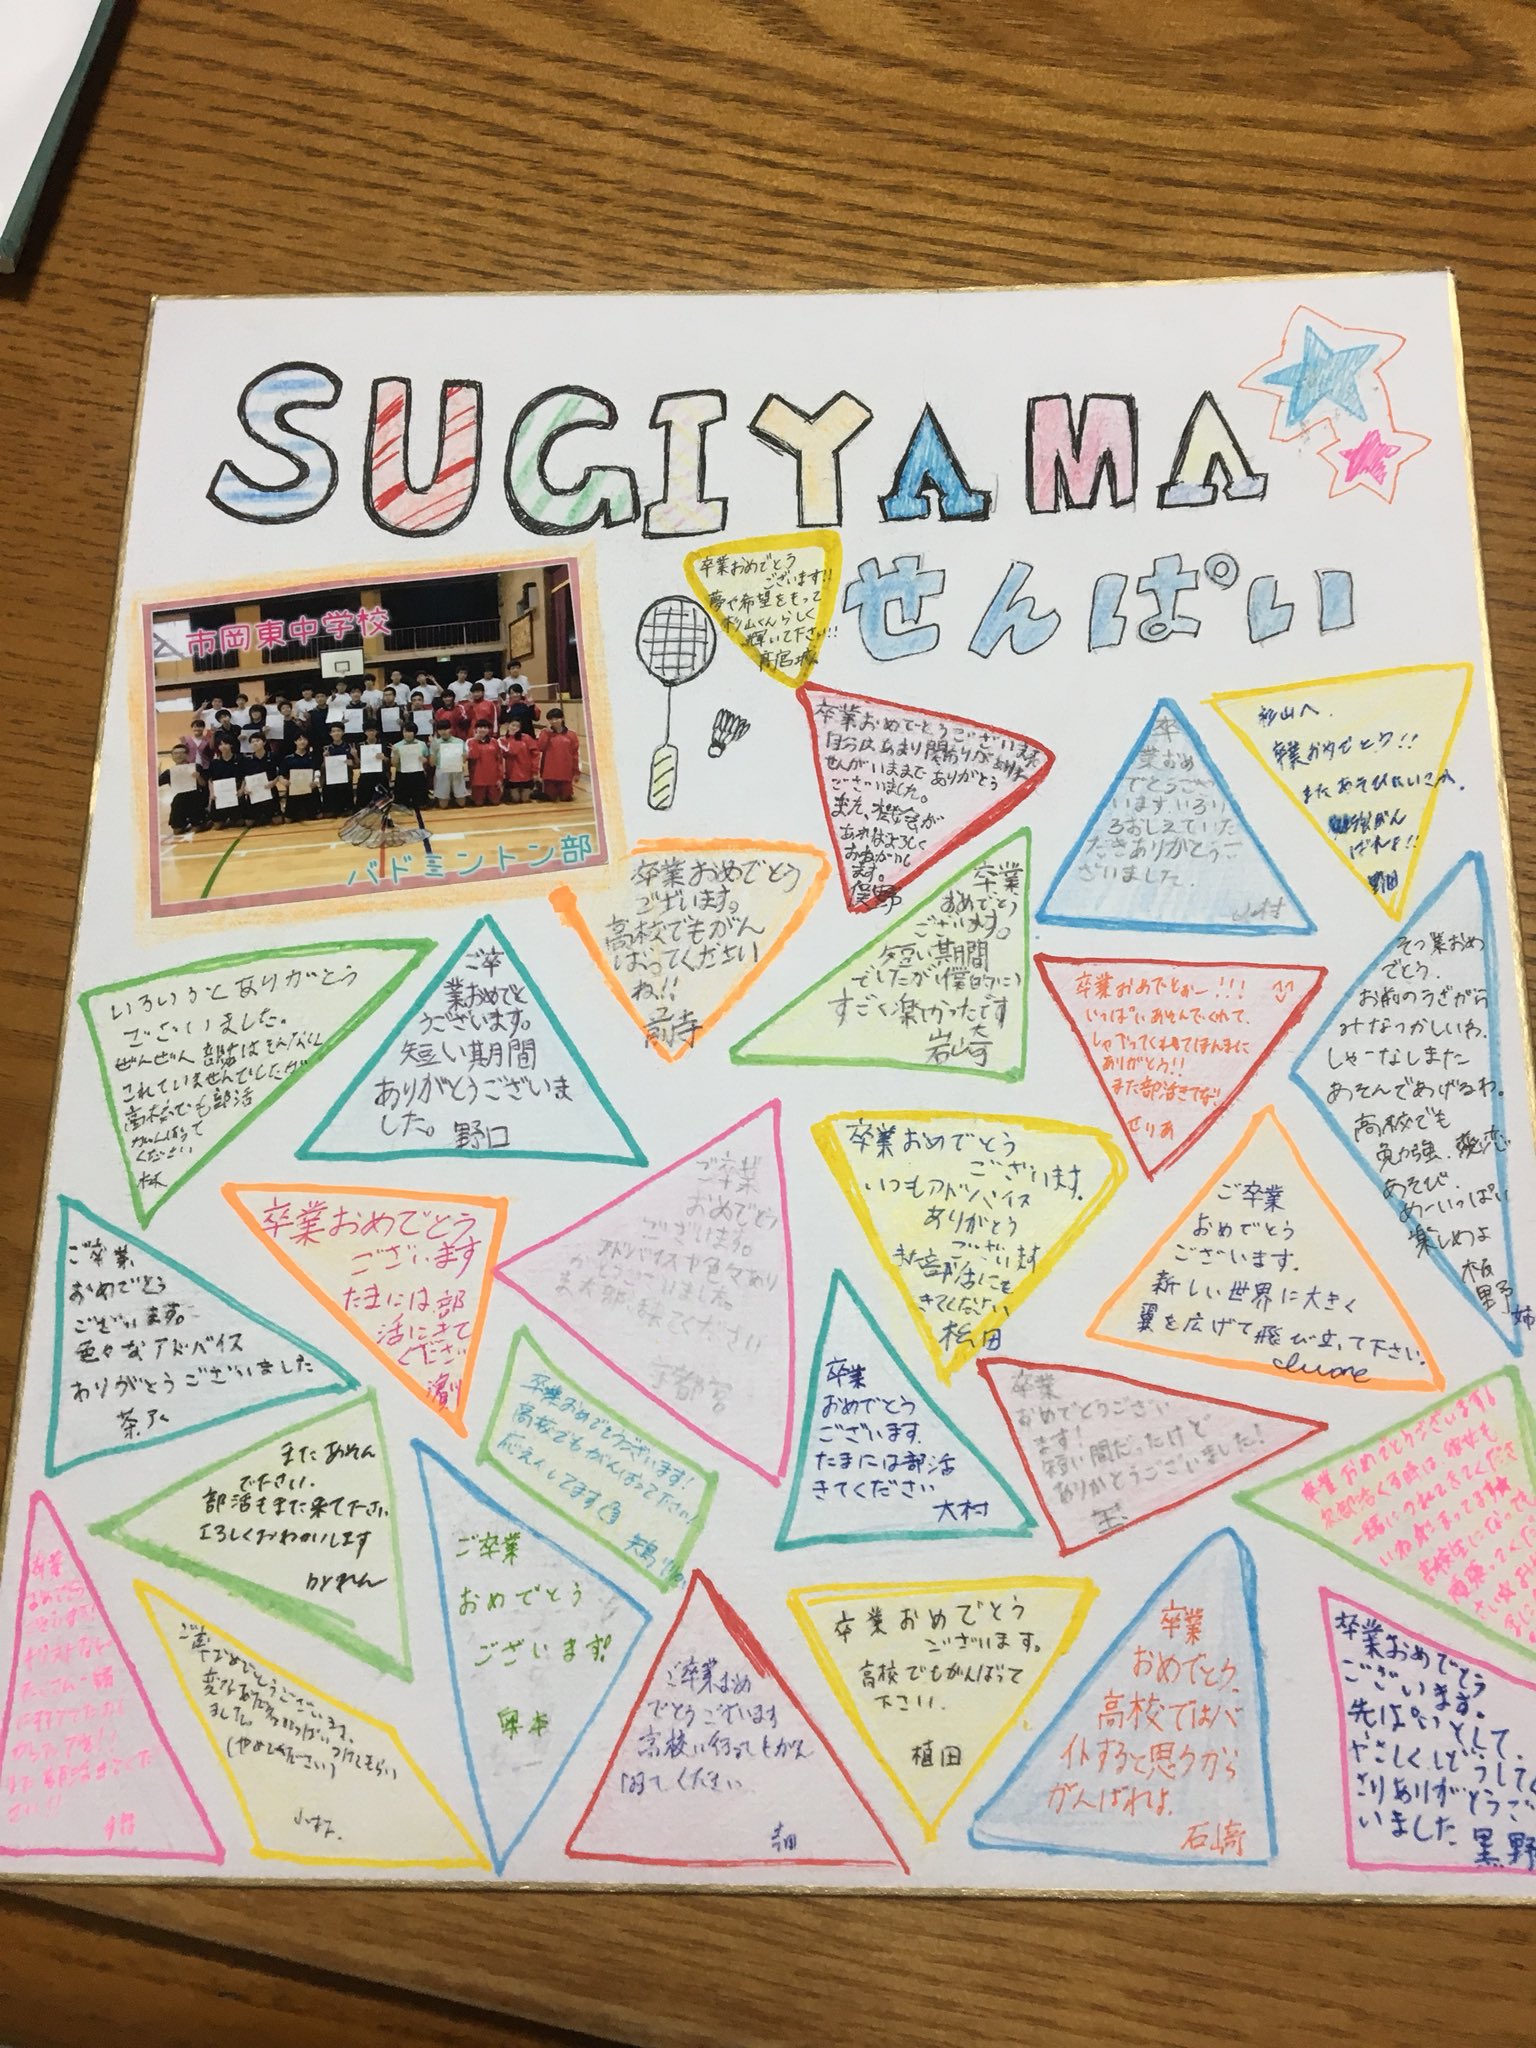 SUGIYAMA
せんぱい
市岡東中学校
バドミントン部
卒業おめでとう
ございます!!
夢や希望をもって
杉山くんらしく
輝いて下さい!!
高宮城
卒業おめでとうございます
せんがいままでありがとう
ございました。
また、機会が
あればよろしく
おねがいし
ます。
俣野
卒
業おめ
でとうござ
います いろい
ろおしえていた
だきありがとうご
ざいました.
山村
杉山へ.
卒業おめでとう!!
またあそびにいこか.
ばれよ!!
野田
卒業おめでとう
ございます。
高校でもがん
ばってください
ね!!
高寺
卒業
おめでとう
ございます。
短い期間
でしたが僕的に
すごく楽しかったです
岩崎
いろいろとありがとう
ございました。
ぜんぜん部活は
これていませんでしたが
高校でも部活
がんばって
ください
林
ご卒
業おめでと
うございます。
短い期間
ありがとうございま
した。 野口
卒業おめでとぉー!!!
いっぱいあそんでくれて、
しゃべってくれてほんまに
ありがとう!!
また部活きてな!
せりあ
そつ業おめ
でとう.
お前のうざがら
みなつかしいわ.
しゃーなしまた
あそんであげるわ.
高校でも
勉強.恋
あそび.
めーいっぱい
楽しめよ
板野 姉
ご卒業
おめでとう
ございます。
アドバイスや色々あり
がとうございました。
また部活に来てください
宇都宮
卒業おめでとう
ございます.
いつもアドバイス
ありがとう
ございます
また部活にも
きてください
松田
ご卒業
おめでとう
ございます.
新しい世界に大きく
翼を広げて飛び立って下さい.
ご卒業
おめでとう
ございます。
色々なアドバイス
ありがとうございました
卒業おめでとう
ございます
たまには部
活にきて
ください
濱川
卒業おめでとうございます!
高校でもがんばって下さい!
応えんしてます
卒業
おめでとう
ございます.
たまには部活
きてください
大村
卒業
おめでとうござい
ます!
短い間だったけど
ありがとうございました!
またあそん
で下さい.
部活もまた来て下さい
よろしくおねがいします
byれん
卒業おめでとうございます!
一緒につれてきてくださ
高校生になっても
卒業
おめでとう
ございます!
たくさん一緒
ご卒業おめでとうございます。
変なあだ名いっぱいつけてもらい
ました。
(やめてください)
山本.
ご卒業
おめでとう
ございます!
奥本
ご卒業おめ
でとうございます
高校に行ってもがん
ばってください
吉田
卒業おめでとう
ございます。
高校でもがんばって
下さい.
植田
卒業
おめでとう.
高校ではバ
イトすると思うから
がんばれよ.
石崎
卒業おめでとう
ございます。
先ぱいとして、
やさしくしどうしてく
ださりありがとうござ
いました 黒野